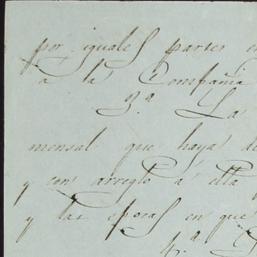 por iguales partes
á la Compañia
3.ª La
mensual que haya de
y con arreglo á ella
y las epocas en que
4.ª